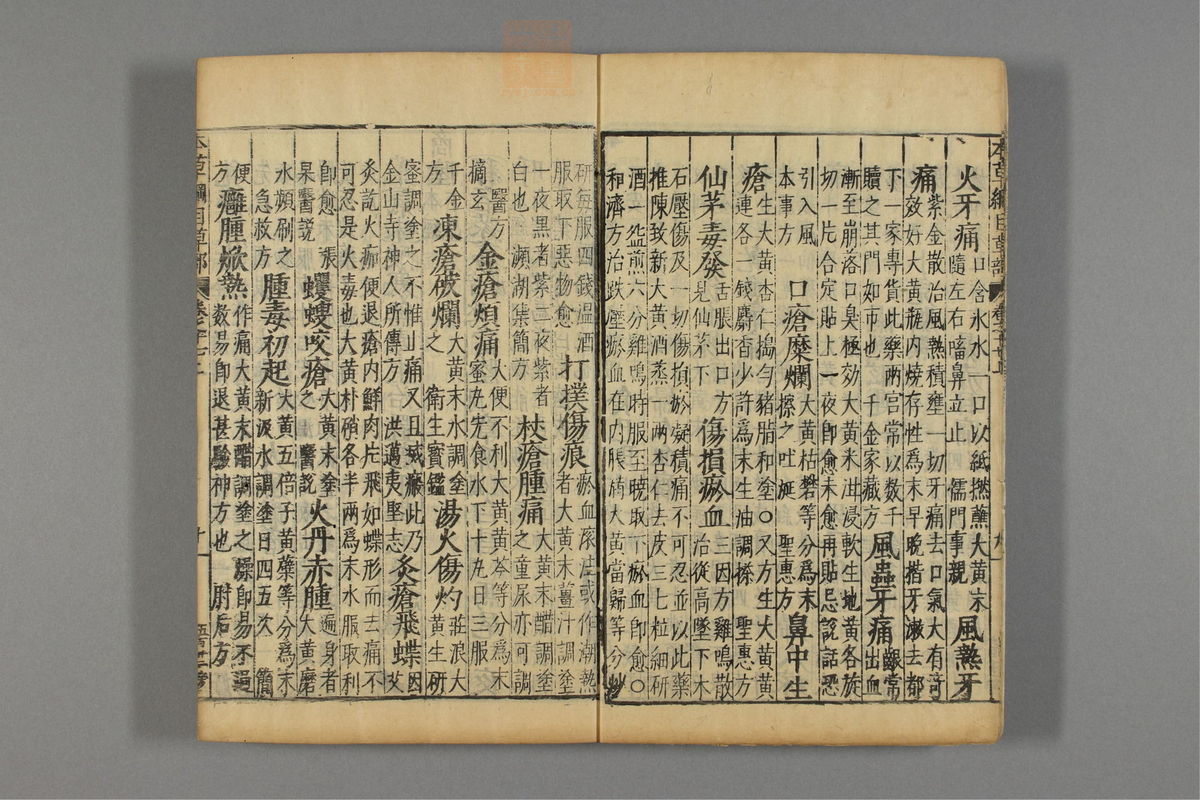 火牙痛 口含氷水一口以紙撚蘸大黄末
隨左右㗜鼻立止 儒門事親 風熱牙
痛 紫金散治風熱積壅一切牙痛去口氣大有竒
效好大黄瓶内燒存性為末早晚揩牙漱去都
下一家專貨此藥兩宮常以數千
贖之其門如市也 千金家藏方 風蟲牙痛 齦常
出血
漸至崩落口臭極効大黄米泔浸軟生地黄各旋
切一片合定貼上一夜即愈未愈再貼忌説話恐
引入風
本事方 口瘡糜爛 大黄枯礬等分為末
擦之吐涎 聖惠方 鼻中生
瘡 生大黄杏仁搗勻猪脂和塗○又方生大黄黄
連各一錢麝香少許為末生油調搽 聖惠方
仙茅毒發 舌脹出口方
見仙茅下 傷損瘀血 三因方雞鳴散
治從高墜下木
石壓傷及一切傷損瘀凝積痛不可忍並以此藥
推陳致新大黄酒蒸一兩杏仁去皮三七粒細研
酒一盌煎六分雞鳴時服至曉取下瘀血即愈○
和濟方治跌壓瘀血在内脹滿大黄當歸等分炒
研每服四錢温酒
服取下惡物愈 打撲傷痕 瘀血滾注或作潮熱
者大黄末薑汁調塗
一夜黑者紫二夜紫者
白也 瀕湖集簡方 杖瘡腫痛 大黄末醋調塗
之童尿亦可調
醫方
摘玄 金瘡煩痛 大便不利大黄黄芩等分為末
蜜丸先食水下十丸日三服
千金
方 凍瘡破爛 大黄末水調塗
之 衛生寳鑑 湯火傷灼 莊浪大
黄生研
蜜調塗之不惟止痛又且滅瘢此乃
金山寺神人所傳方 洪邁夷堅志 灸瘡飛蝶 因
艾
灸訖火痂便退瘡内鮮肉片飛如蝶形而去痛不
可忍是火毒也大黄朴硝各半兩為末水服取利
即愈 張
杲醫説 蠼螋咬瘡 大黄末塗
之 醫説 火丹赤腫 遍身者
大黄磨
水頻刷之
急救方 腫毒初起 大黄五倍子黄蘗等分為末
新汲水調塗日四五次 簡
便
方 癰腫焮熱 作痛大黄末醋調塗之燥即易不過
數易即退甚驗神方也 肘后方
本草綱目草部